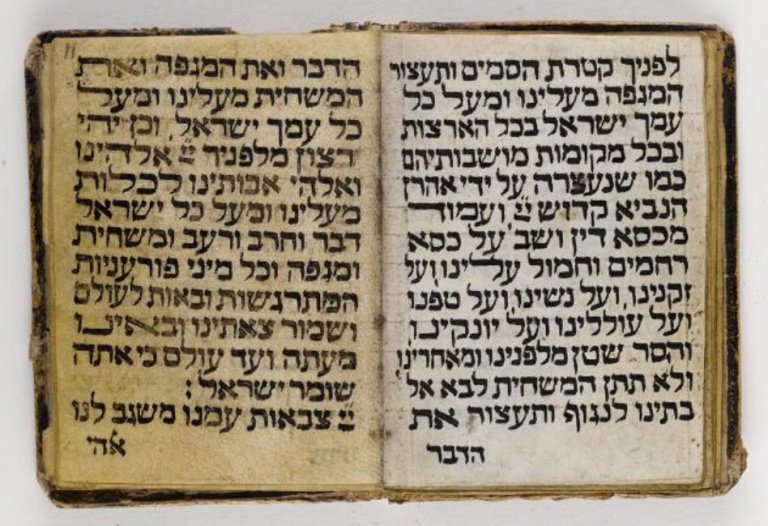 לפניך קטרת הסמים ותעצור
המגפה מעלינו ומעל כל
עמך ישראל בכל הארצות
ובכל מקומות מושבותיהם
כמו שנעצרה על ידי אהרן
הנביא קדוש ײ ועמוד
מכסא דין ושב על כסא
רחמים וחמול עלינו ועל
זקנינו ועל נשינו ועל טפנו
ועל עוללינו ועל יונקינו
והסר שטן מלפנינו ומאחרינו
ולא תתן המשחית לבא אל
בתינו לנגוף ותעצור את
הדבר
11
הדבר ואת המגפה ואת
המשחית מעלינו ומעל
כל עמך ישראל, וכן יהי
רצון מלפניך ײ אלהינו
ואלהי אבותינו לכלות
מעלינו ומעל כל ישראל
דבר וחרב ורעב ומשחית
ומגפה וכל מיני פורעניות
המתרגשות ובאות לעולם
ושמור צאתינו ובאינו
מעתה ועד עולם כי אתה
שומר ישראל:
ײ צבאות עמנו משגב לנו
אהי